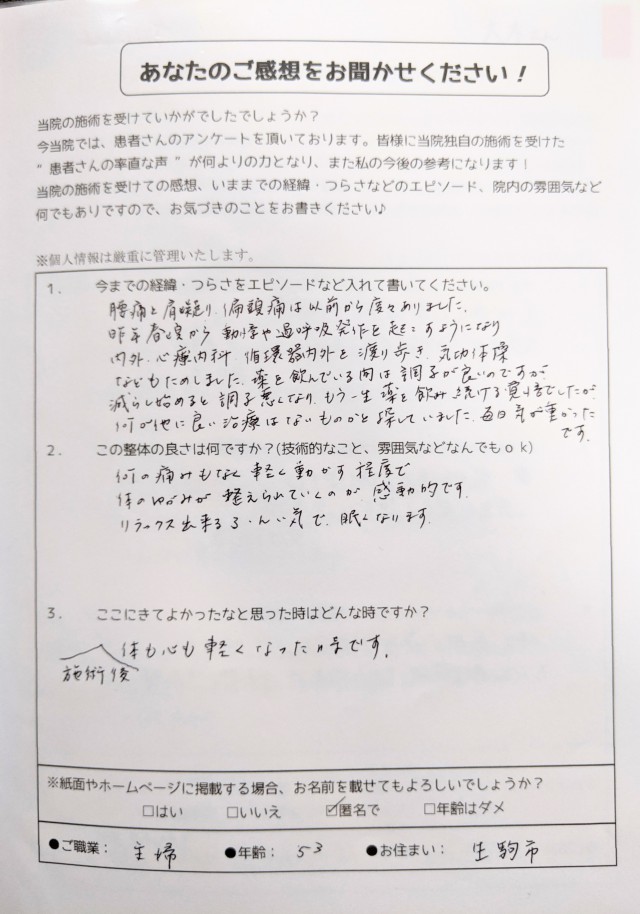 あなたのご感想をお聞かせください！
当院の施術を受けていかがでしたでしょうか？
今当院では、患者さんのアンケートを頂いております。皆様に当院独自の施術を受けた
“患者さんの率直な声 ”が何よりの力となり、また私の今後の参考になります！
当院の施術を受けての感想、いままでの経緯・つらさなどのエピソード、院内の雰囲気など
何でもありですので、お気づきのことをお書きください♪
※個人情報は厳重に管理いたします。
1． 今までの経緯・つらさをエピソードなど入れて書いてください。
腰痛と肩凝り、偏頭痛は以前から度々ありました。
昨年春頃から 動悸や過呼吸発作を起こすようになり
内外、心療内科 循環器内外と渡り歩き、気功体操
などもためしました。薬を飲んでいる間は調子が良いのですが
減らし始めると調子悪くなり、もう一生薬を飲み続ける覚悟でしたが
何か他に良い治療はないものかと探していました。毎日気が重かった
です。
2． この整体の良さは何ですか？(技術的なこと、雰囲気などなんでもｏｋ)
何の痛みもなく軽く動かす程度で
体のゆがみが整えられていくのが感動的です。
リラックス出来るふんい気で、眠くなります。
3． ここにきてよかったなと思った時はどんな時ですか？
体も心も軽くなった時です。
施術後
※紙面やホームページに掲載する場合、お名前を載せてもよろしいでしょうか？
□はい □いいえ ☑匿名で □年齢はダメ
●ご職業： 主婦 ●年齢： 53 ●お住まい： 生駒市